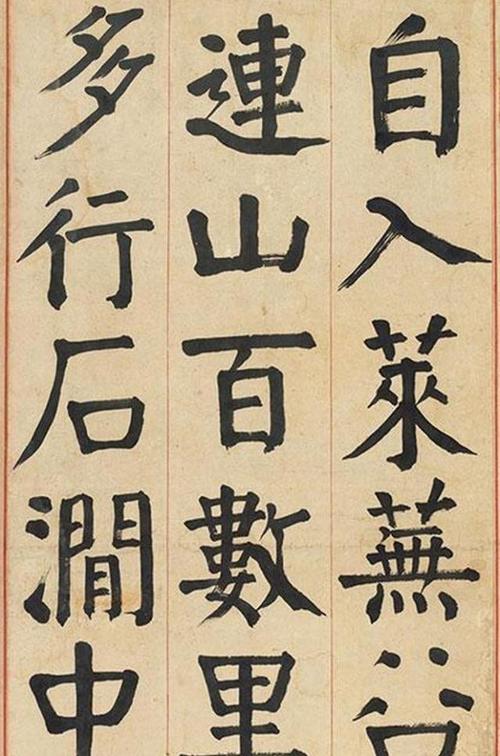 自入萊蕪谷
連山百數里
多行石澗中